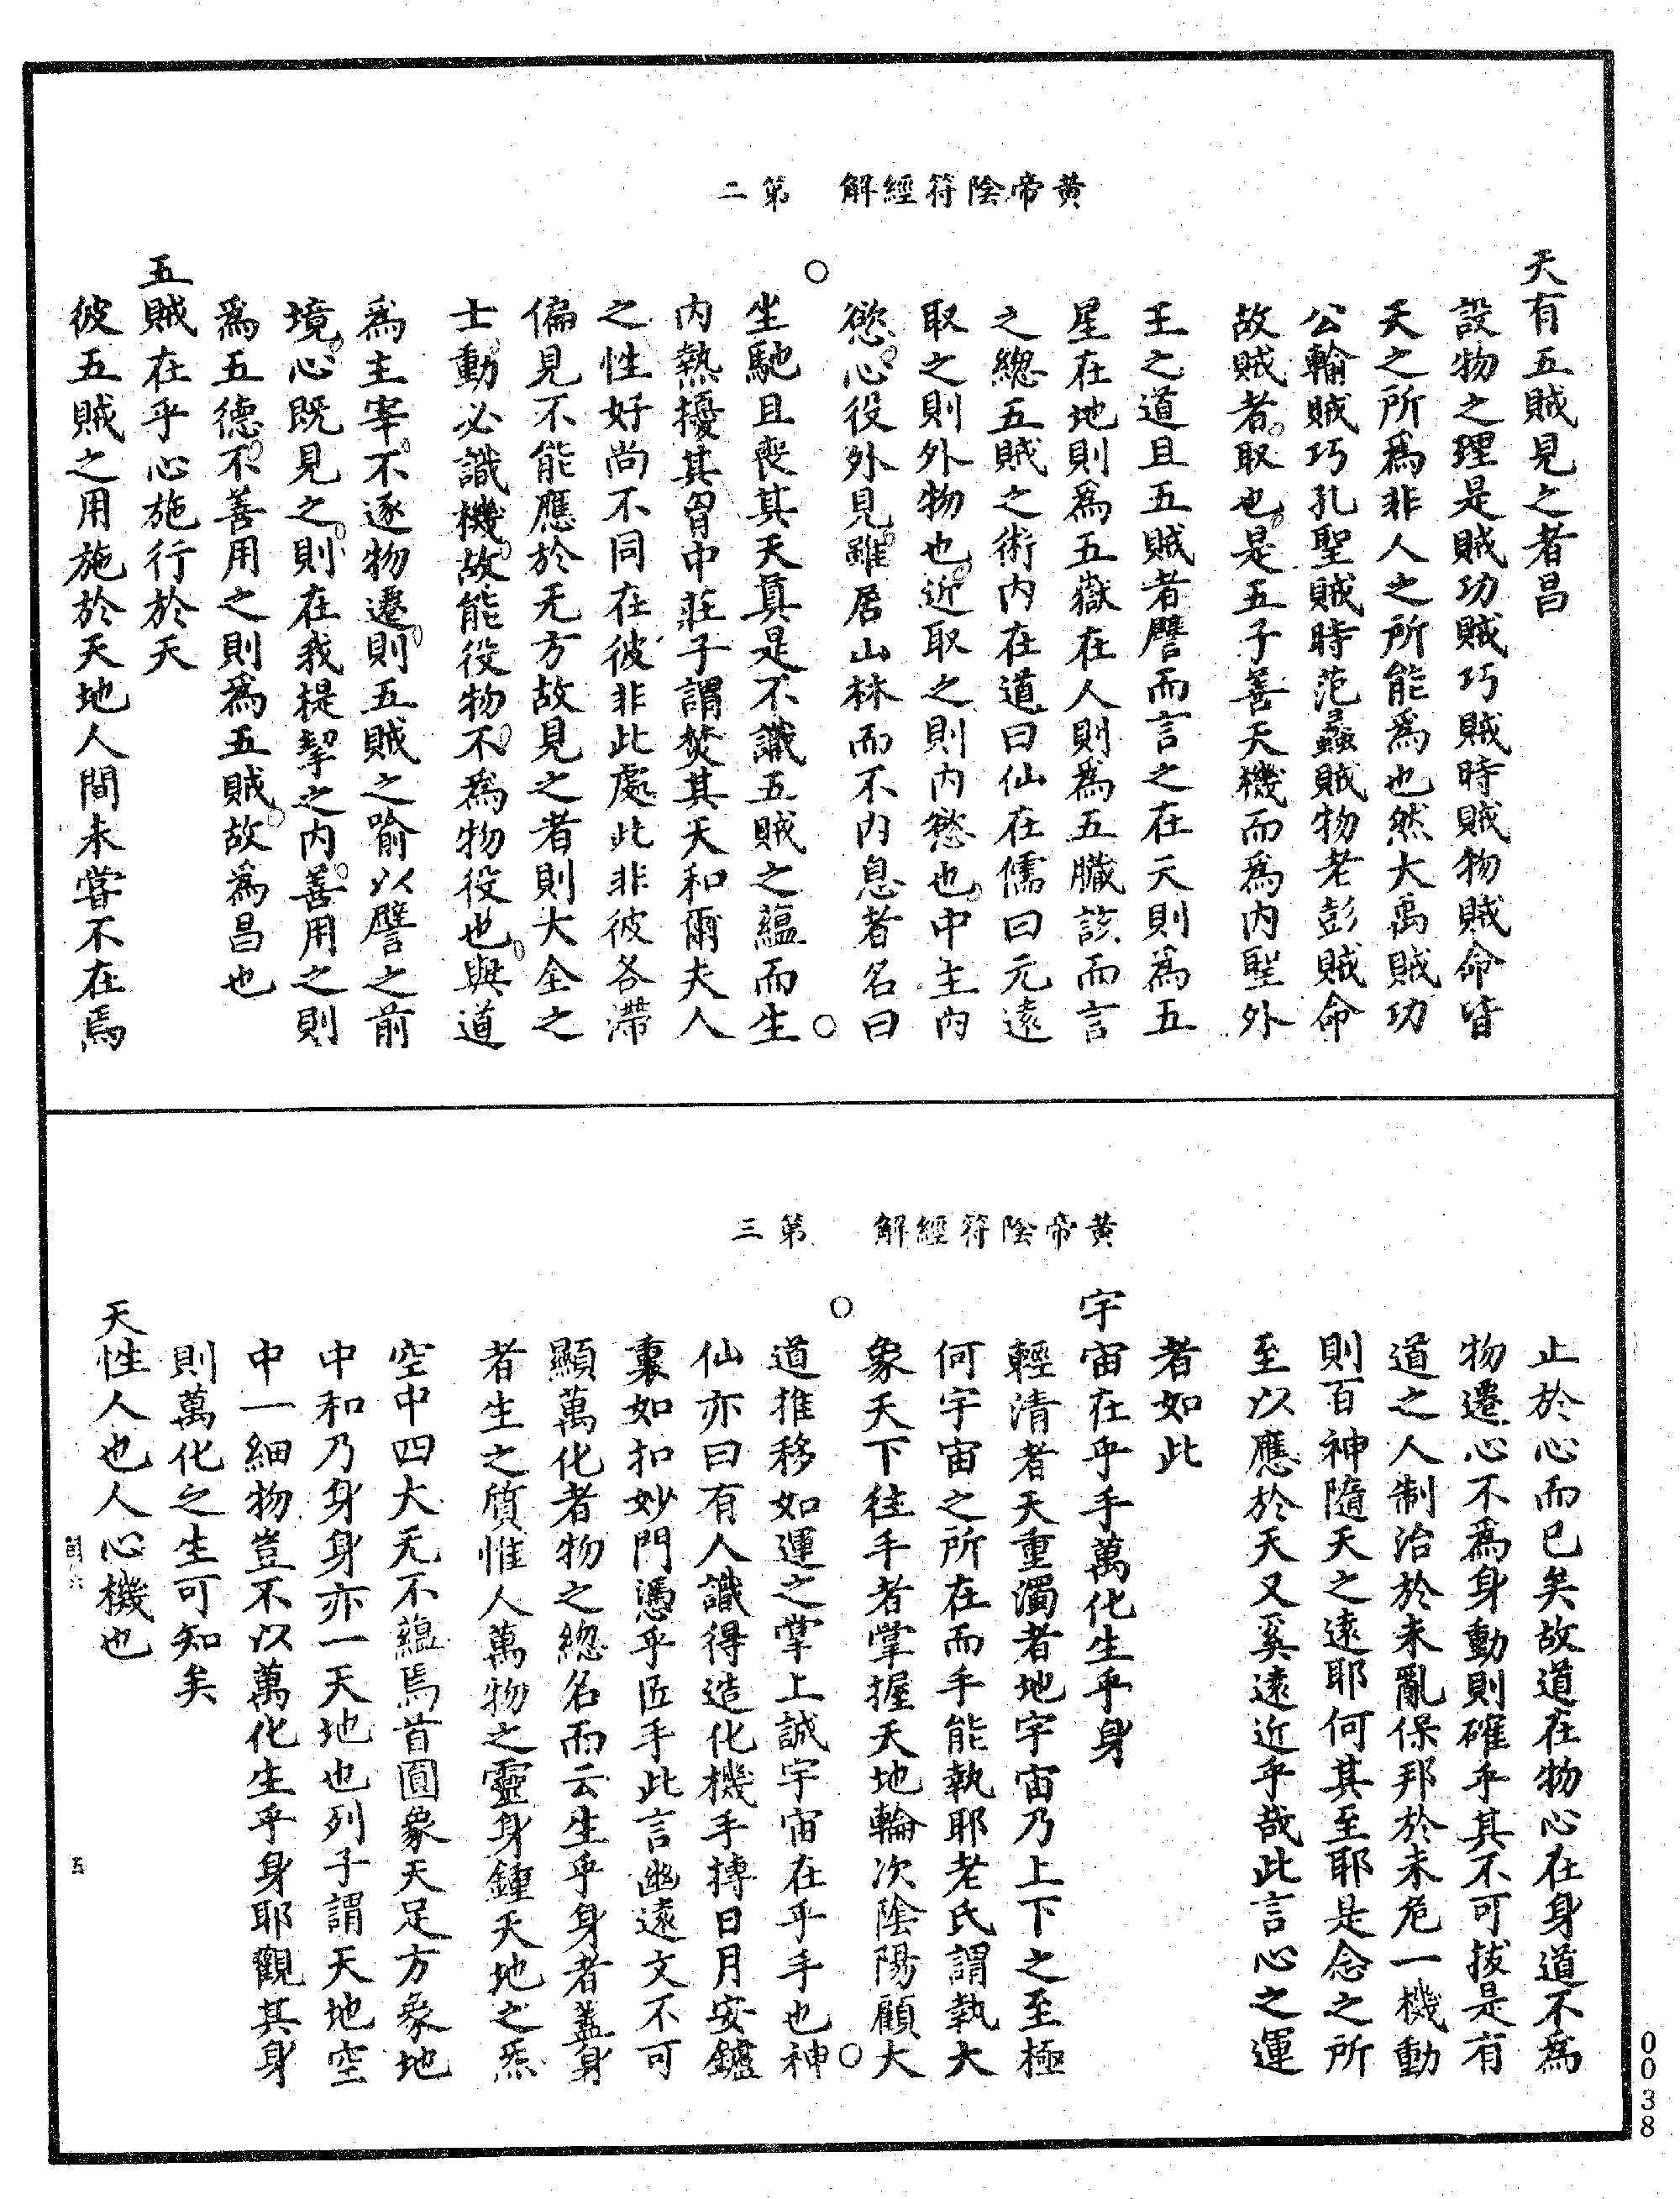 黃帝陰符經解　第二
天有五賊見之者昌
設物之理是賊功賊巧賊時賊物賊命皆
天之所爲非人之所能爲也然大禹賊功
公輸賊巧孔聖賊時范蠡賊物老彭賊命
故賊者取也是五子善天機而爲內聖外
王之道且五賊者譬而言之在天則爲五
星在地則爲五嶽在人則爲五臟該而言
之緫五賊之術內在道曰仙在儒曰元遠
取之則外物也近取之則內慾也中主內
慾心役外見雖居山林而不內息者名曰
坐馳且喪其天眞是不識五賊之蘊而生
內熱擾其胷中莊子謂焚其天和爾夫人
之性好尚不同在彼非此處此非彼各滯
偏見不能應於无方故見之者則大全之
士動必識機故能役物不爲物役也與道
爲主宰不逐物遷則五賊之喻以譬之前
境心旣見之則在我提挈之內善用之則
爲五德不善用之則爲五賊故爲昌也
五賊在乎心施行於天
彼五賊之用施於天地人間未嘗不在焉
黃帝陰符經解　第三
止於心而已矣故道在物心在身道不爲
物遷心不爲身動則確乎其不可拔是有
道之人制治於未亂保邦於未危一機動
則百神隨天之遠耶何其至耶是念之所
至以應於天又奚遠近乎哉此言心之運
者如此
宇宙在乎手萬化生乎身
輕清者天重濁者地宇宙乃上下之至極
何宇宙之所在而手能執耶老氏謂執大
象天下往手者掌握天地輪次陰陽顧大
道推移如運之掌上誠宇宙在乎手也神
仙亦曰有人識得造化機手摶日月安鑪
裏如扣妙門憑乎匠手此言幽遠文不可
顯萬化者物之緫名而云生乎身者蓋身
者生之質惟人萬物之靈身鍾天地之炁
空中四大无不蘊焉首圓象天足方象地
中和乃身身亦一天地也列子謂天地空
中一細物豈不以萬化生乎身耶觀其身
則萬化之生可知矣
天性人也人心機也
五
0038